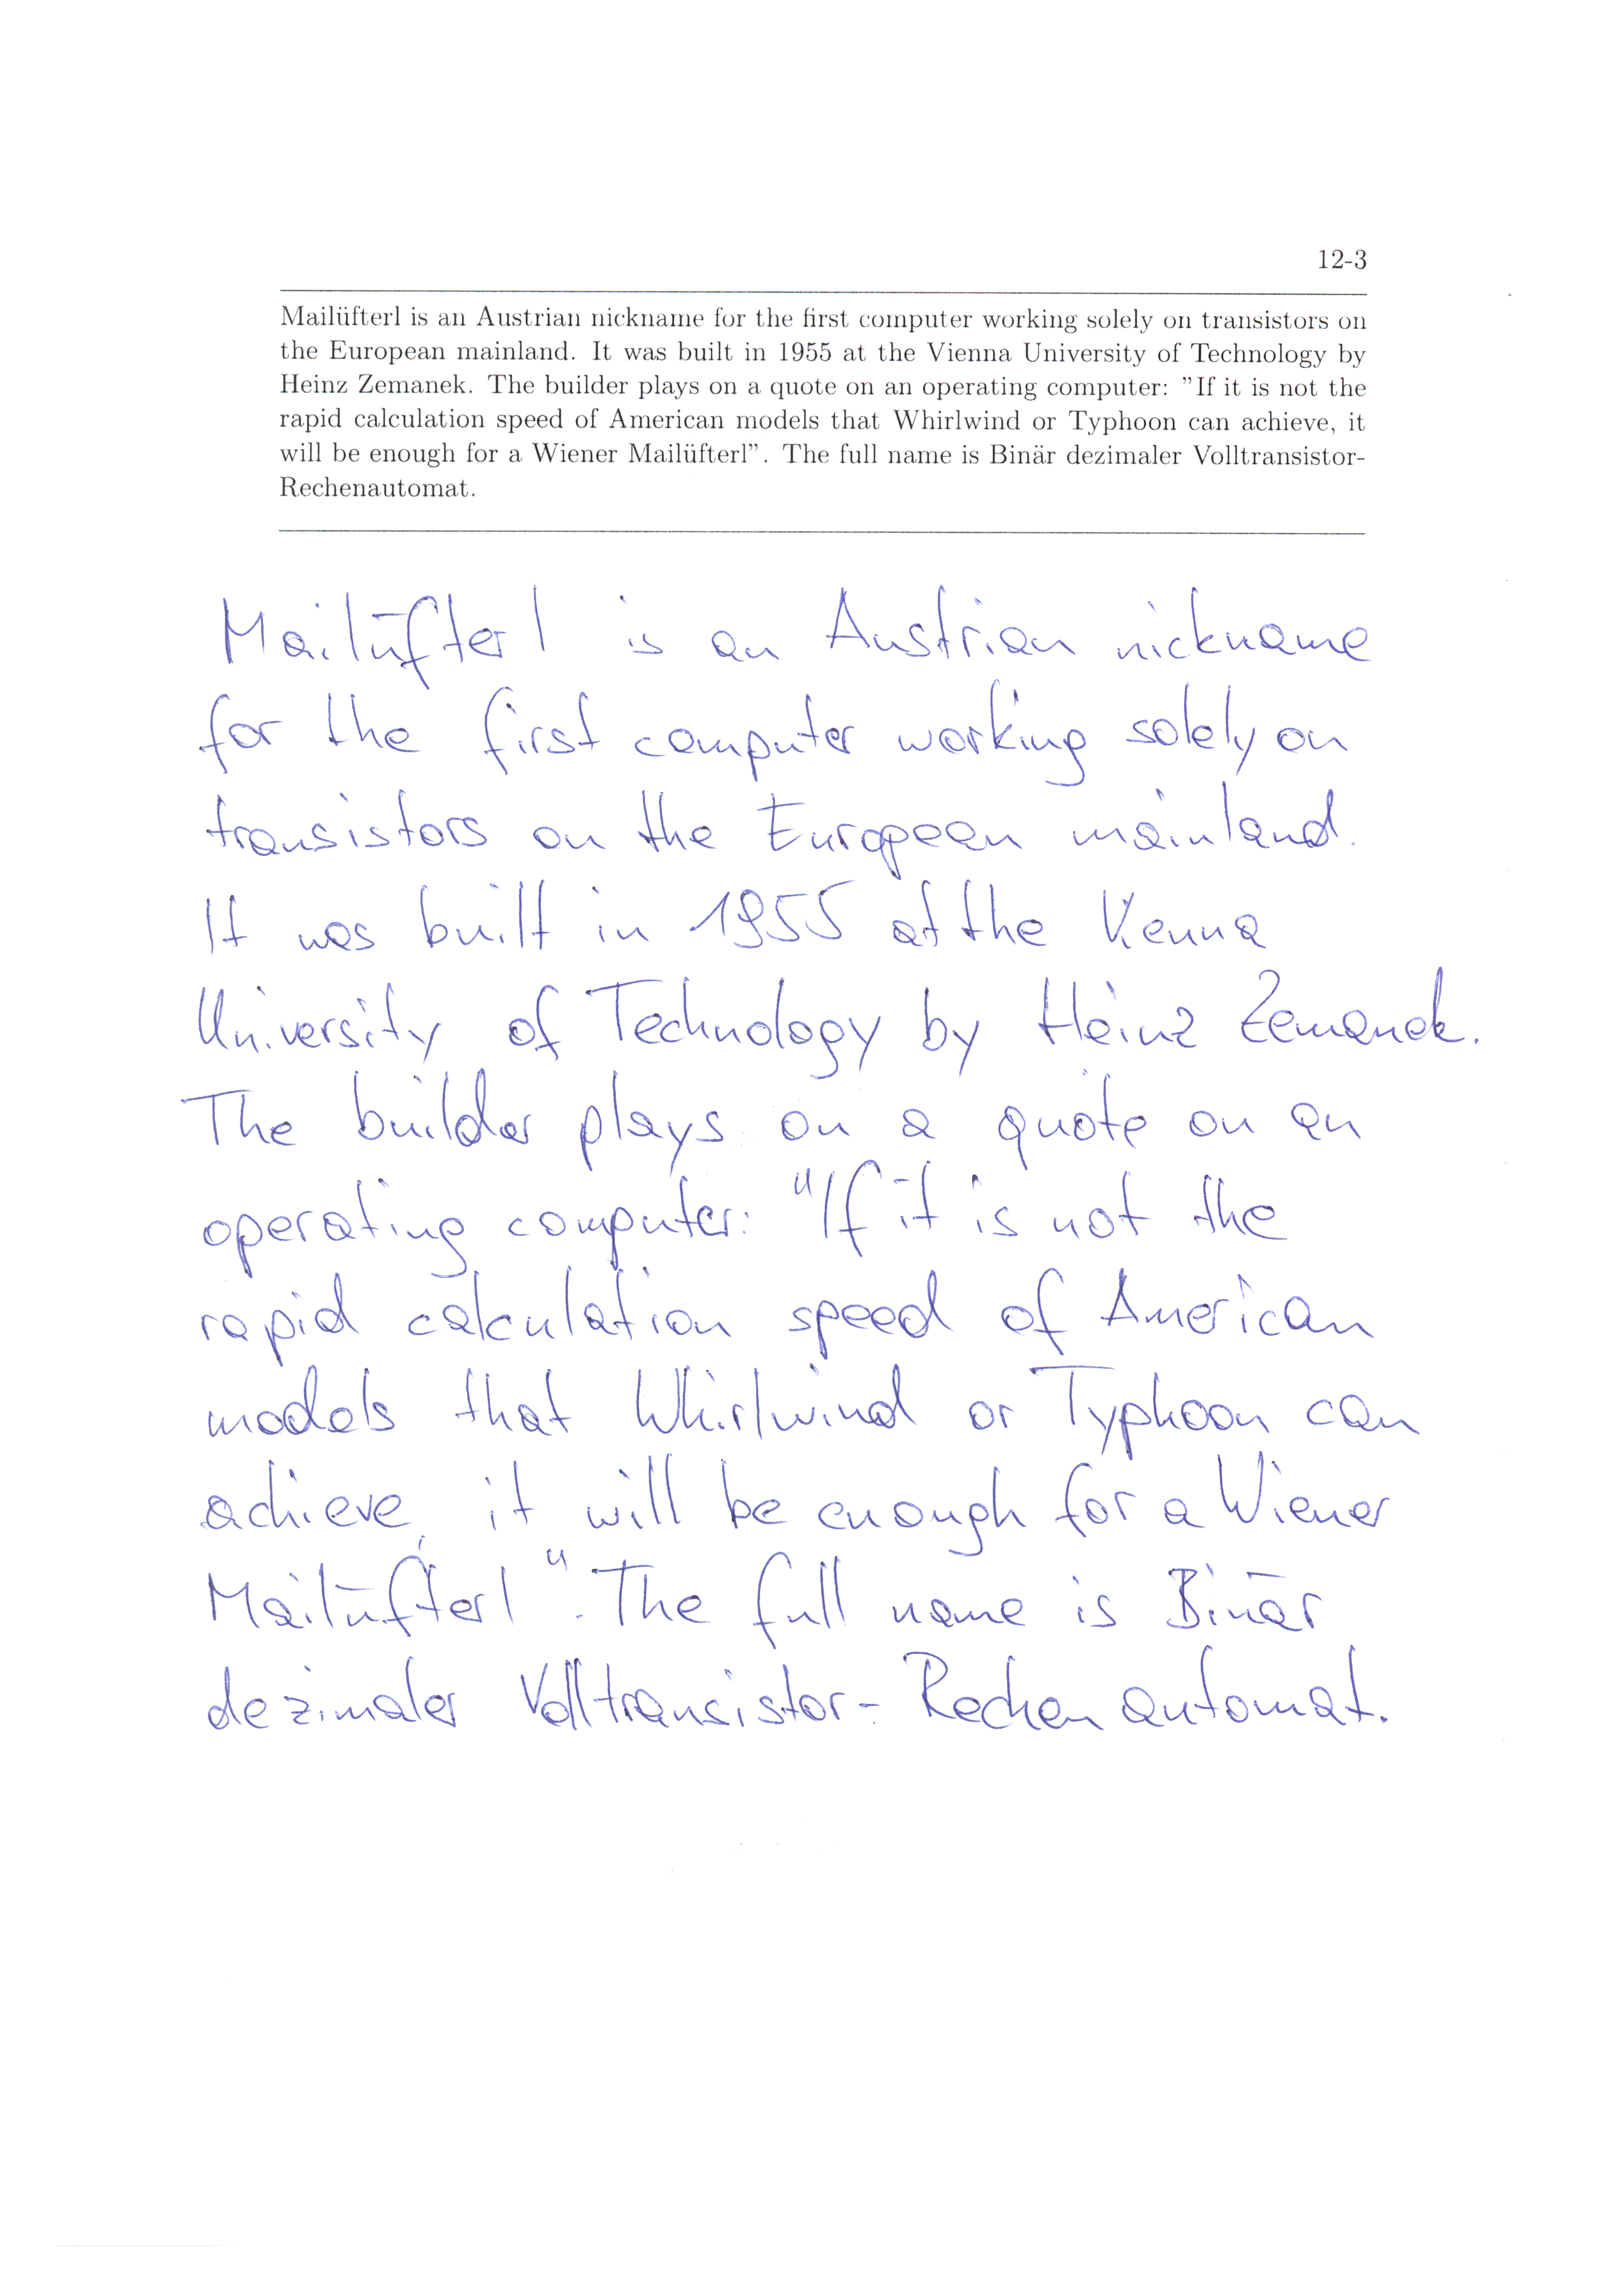 12-3
Mailüfterl is an Austrian nickname for the first computer working solely on transistors on
the European mainland. It was built in 1955 at the Vienna University of Technology by
Heinz Zemanek. The builder plays on a quote on an operating computer: "If it is not the
rapid calculation speed of American models that Whirlwind or Typhoon can achieve, it
will be enough for a Wiener Mailüfterl". The full name is Binär dezimaler Volltransistor-
Rechenautomat.
Mailüfterl is an Austrian nickname
for the first computer working solely on
transistors on the European mainland.
It was built in 1955 at the Vienna
University of Technology by Heinz Zemanek.
The builder plays on a quote on an
operating computer: "If it is not the
rapid calculation speed of American
models that Whirlwind or Typhoon can
achieve, it will be enough for a Wiener
Mailüfterl". The full name is Binär
dezimaler Volltransistor-Rechenautomat.